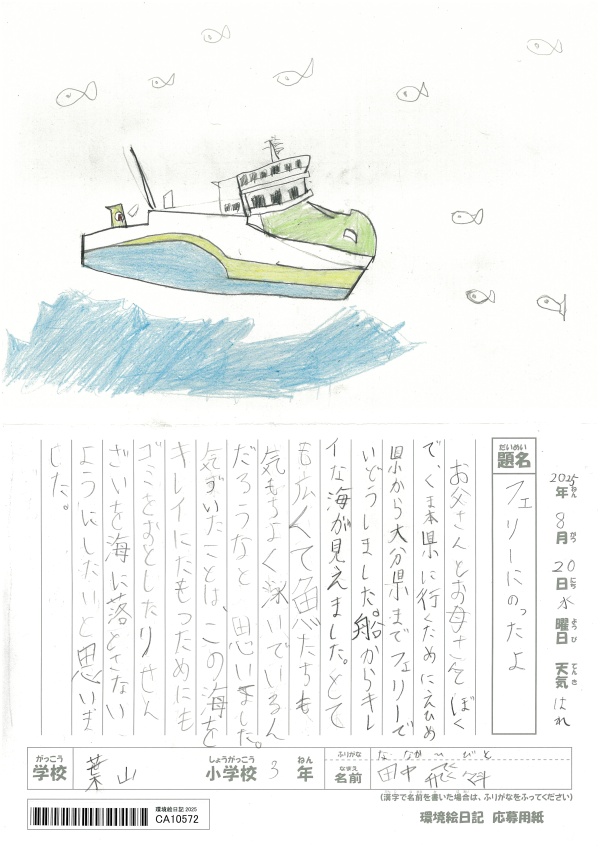 2025年 8月 20日 水曜日 天気 はれ
ねん がつ にち ようび てんき
だいめい
題名
フェリーにのったよ
お父さんとお母さんとぼく
で、くま本県に行くためにえひめ
県から大分県までフェリーで
いどうしました。船からキレ
イな海が見えました。とて
も広くて魚たちも、
気もちよく泳いでいるん
だろうなと、思いました。
気づいたことは、この海を
キレイにたもつためにも
ゴミをおとしたりせん
ざいを海に落とさない
ようにしたいと思いま
した。
がっこう しょうがっこう ねん ふりがな
学校 葉山 小学校 3 年
なまえ
名前 田中
(漢字で名前を書いた場合は、ふりがなをふってください)
環境絵日記 2025
CA10572
環境絵日記 応募用紙